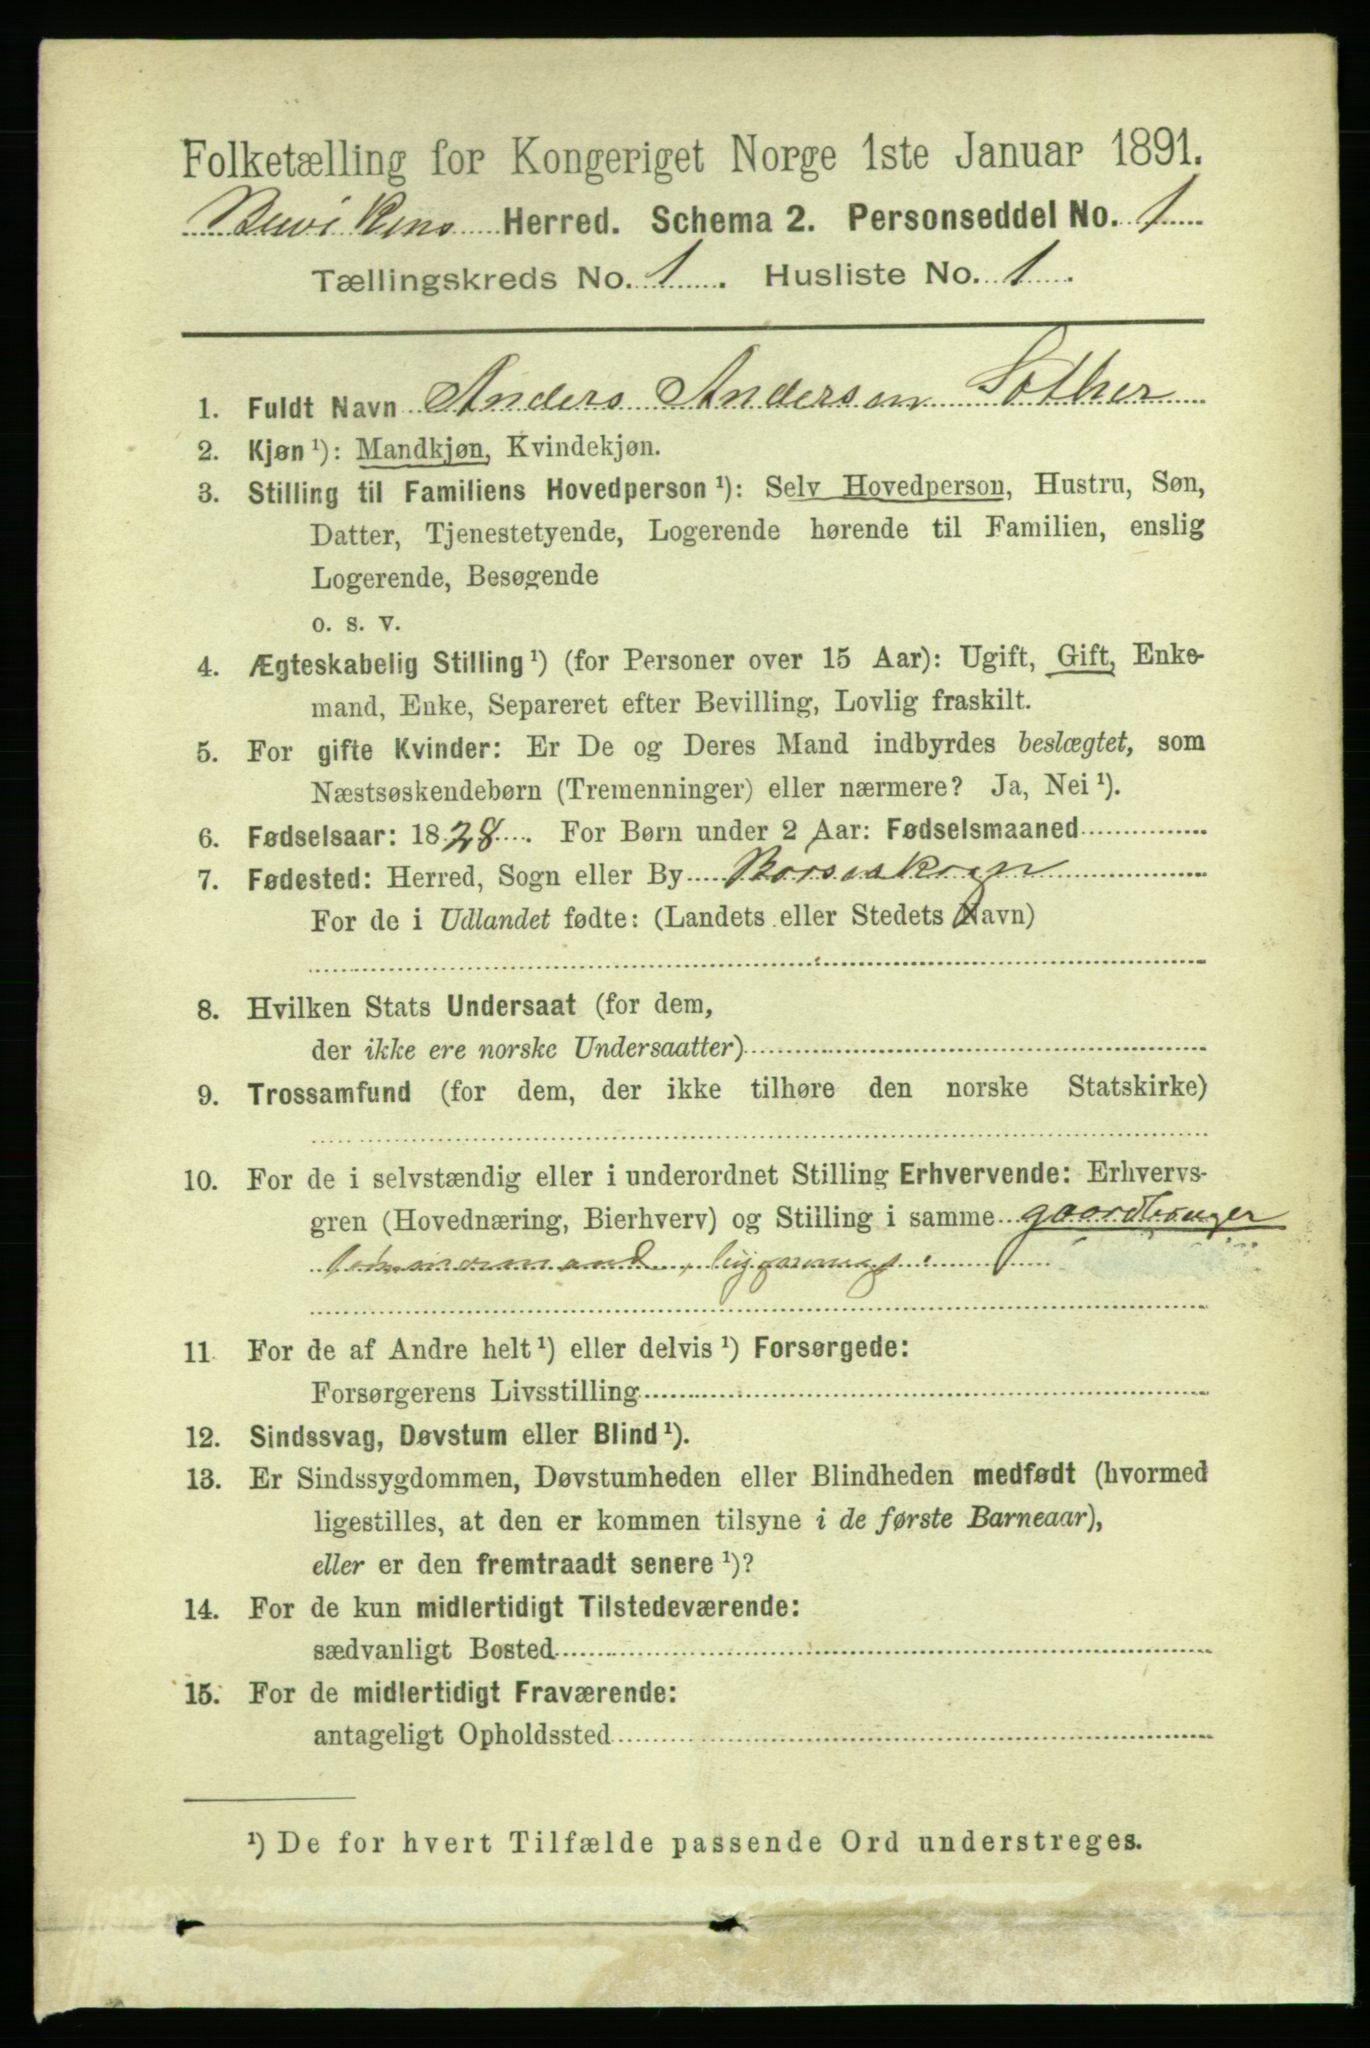 Folketælling for Kongeriget Norge 1ste Januar 1891.
Buvikens Herred. Schema 2. Personseddel No. 1
Tællingskreds No. 1. Husliste No. 1.
1. Fuldt Navn Anders Andersen Sother
2. Kjøn ¹): Mandkjøn, Kvindekjøn.
3. Stilling til Familiens Hovedperson ¹): Selv Hovedperson, Hustru, Søn,
Datter, Tjenestetyende, Logerende hørende til Familien, enslig
Logerende, Besøgende
o. s. v.
4. Ægteskabelig Stilling ¹) (for Personer over 15 Aar): Ugift, Gift, Enke-
mand, Enke, Separeret efter Bevilling, Lovlig fraskilt.
5. For gifte Kvinder: Er De og Deres Mand indbyrdes beslægtet, som
Næstsøskendebørn (Tremenninger) eller nærmere? Ja, Nei ¹).
6. Fødselsaar: 1828. For Børn under 2 Aar: Fødselsmaaned
7. Fødested: Herred, Sogn eller By Børseskogn
For de i Udlandet fødte: (Landets eller Stedets Navn)
8. Hvilken Stats Undersaat (for dem,
der ikke ere norske Undersaatter)
9. Trossamfund (for dem, der ikke tilhøre den norske Statskirke)
10. For de i selvstændig eller i underordnet Stilling Erhvervende: Erhvervs-
gren (Hovednæring, Bierhverv) og Stilling i samme gaardbruger
11 For de af Andre helt ¹) eller delvis ¹) Forsørgede:
Forsørgerens Livsstilling
12. Sindssvag, Døvstum eller Blind ¹).
13. Er Sindssygdommen, Døvstumheden eller Blindheden medfødt (hvormed
ligestilles, at den er kommen tilsyne i de første Barneaar),
eller er den fremtraadt senere ¹)?
14. For de kun midlertidigt Tilstedeværende:
sædvanligt Bosted
15. For de midlertidigt Fraværende:
antageligt Opholdssted
¹) De for hvert Tilfælde passende Ord understreges.